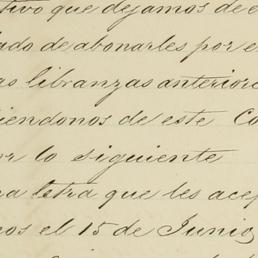 tivo que dejamos de e
ado de abonarles por e
as libranzas anterior
iendonos de este Co
or lo siguiente
ra letra que les acep
os el 15 de Junio